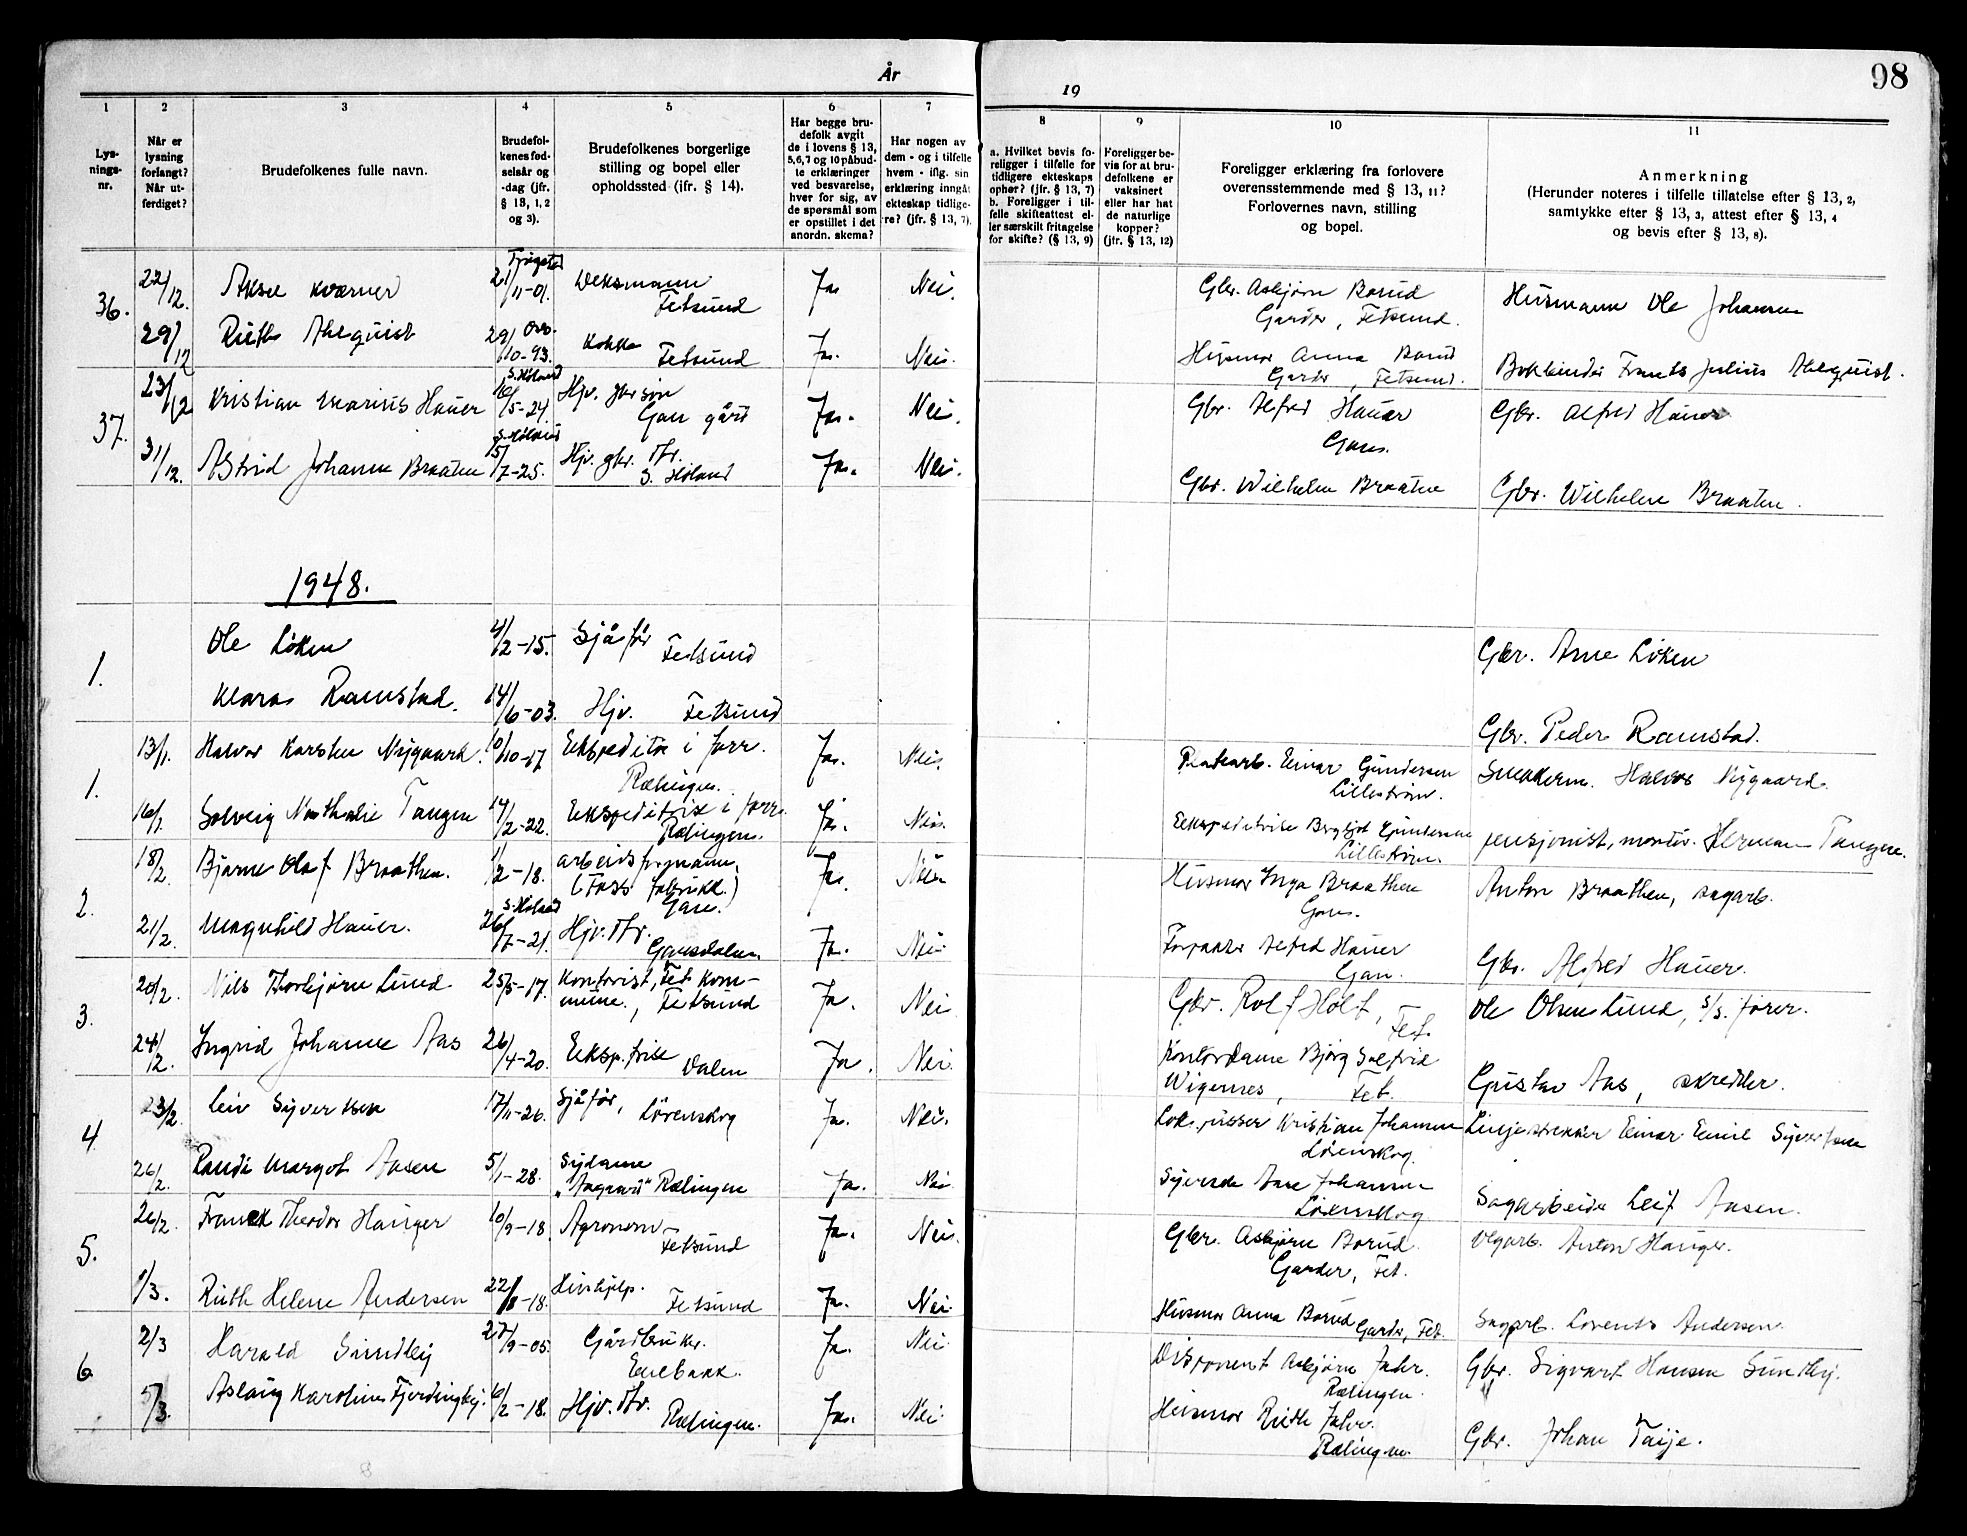 År
19
98
1
2
3
4
5
6
7
8
9
10
11
Lys-
nings-
nr.
Når er
lysning
forlangt?
Når ut-
ferdiget?
Brudefolkenes fulle navn.
Brudefol-
kenes fød-
selsår og
-dag (jfr.
§ 13, 1, 2
og 3).
Brudefolkenes borgerlige
stilling og bopel eller
opholdssted (jfr. § 14).
Har begge bru-
defolk avgit
de i lovens § 13,
5,6,7 og 10 påbud-
te erklæringer
ved besvarelse,
hver for sig, av
de spørsmål som
er opstillet i det
anordn. skema?
Har nogen av
dem - og i tilfelle
hvem - iflg. sin
erklæring inngått
ekteskap tidlige-
re? (jfr. § 13, 7).
a. Hvilket bevis fo-
religger i tilfelle for
tidligere ekteskaps
ophør? (jfr. § 13, 7)
b. Foreligger i til-
felle skifteattest el-
ler særskilt fritagelse
for skifte? (§ 13, 9)
Foreligger be-
vis for at bru-
defolkene er
vaksinert
eller har hat
de naturlige
kopper?
(jfr. § 13, 12)
Foreligger erklæring fra forlovere
overensstemmende med § 13, 11?
Forlovernes navn, stilling
og bopel.
Anmerkning
(Herunder noteres i tilfelle tillatelse efter § 13, 2,
samtykke efter § 13, 3, attest efter § 13, 4
og bevis efter § 13, 8).
36. 22/12 Aksel Kværner 21/11-01. Fetsund Ja Nei. Gbr. Asbjørn Borud Garder, Fetsund. Husmann Ole Johansen
29/12 Ruth Ahlquist 29/10-93. Kokke Fetsund Ja. Nei. Husmor Anna Borud Garder, Fetsund. Bokbinder Frants Julius Ahlquist.
37. 23/12 Kristian Marius Hauer S. Høland 16/5-24 Hjv. gbr. søn Gan gård Ja. Nei. Gbr. Alfred Hauer Gan. Gbr. Alfred Hauer
31/12. Astrid Johanne Braaten S. Høland 15/7-25. Hjv. gbr. dtr. S. Høland Ja. Nei. Gbr. Wilhelm Braaten Gbr. Wilhelm Braaten.
1948.
1. Ole Løken 4/2-15. Sjåfør Fetsund Gbr. Arne Løken
Klara Ramstad. 14/6-03. Hjv. Fetsund Gbr. Peder Ramstad.
1. 13/1. Halvor Karsten Nygaard. 10/10-17 Ekspeditør i forr. Rælingen. Ja. Nei. Einar Gundersen Lillestrøm. Snekkerm. Halvor Nygaard.
16/1. Solveig Nathalie Tangen 14/2-22. Ekspeditrise i forr. Rælingen. Ja. Nei. Ekspeditrise Bergljot Gundersen Lillestrøm. pensjonist, montør. Herman Tangen.
2. 18/2. Bjarne Olaf Braathen. 1/2-18. arbeidsformann, (Foss fabrikk.) Gan. Ja. Nei Husmor Inga Braathen Gan. Anton Braathen, sagarb.
21/2. Magnhild Hauer. S. Høland 26/7-21. Hjv. dtr. Gansdalen Ja. Nei. Alfred Hauer Gan. Gbr. Alfred Hauer.
3. 20/2. Nils Thorbjørn Lund 25/5-17. Kontorist, Fet kom-
mune., Fetsund Ja. Nei Gbr. Rolf Holt, Fet. Ole Olsen Lund, s/s. fører.
24/2. Ingrid Johanne Aas 26/4-20. Eksp. trise Dalen Ja. Nei. Kontordame Bjørg Solfrid
Wigernes, Fet. Gustav Aas, skredder.
4. 23/2. Leiv Syversen 17/11-26. Sjåfør, Lørenskog Ja. Nei. Lok. pusser Kristian Johansen Lørenskog. Linjestrekker Einar Emil Syversen
26/2. Randi Margot Aasen 5/1-28. Sydame Rælingen Ja. Nei Syerske Aase Johansen Lørenskog Sagarbeider Leif Aasen.
5. 26/2. Franck Theodor Hauger 10/9-18. Agronom Fetsund Ja. Nei. Gbr. Asbjørn Borud. Garder, Fet. Vegarb. Anton Hauger.
1/3. Ruth Helene Andersen 22/8-18. Hushjelp. Fetsund Ja. Nei. Husmor Anna Borud Garder, Fet. Sagarb. Lorents Andersen.
6 2/3 Harald Sundby 27/9-05. Gårdbruker. Enebakk. Ja. Nei Disponent Asbjørn Jahr. Rælingen. Gbr. Sigvart Hansen Sundby.
5/3. Aslaug Karoline Fjerdingby. 6/2-18. Hjv. dtr. Rælingen. Ja. Nei Husmor Ruth Jahr. Rælingen. Gbr. Johan Taije.